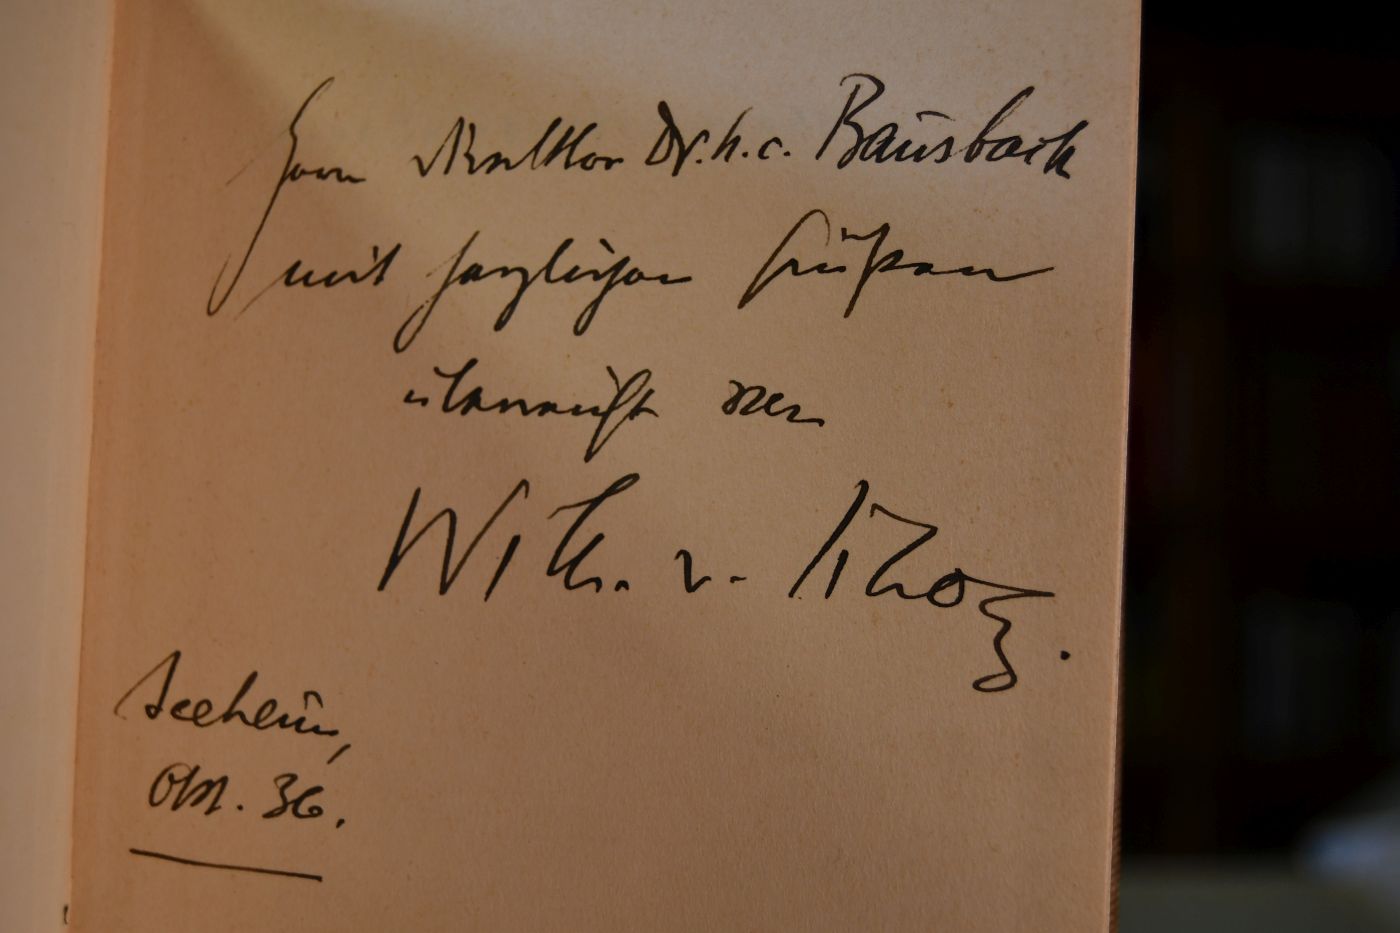 Herrn Direktor Dr. h. c. Bausback
mit herzlichen Grüßen
überreicht von
Wilh. v. Scholz.
Seeheim,
Okt. 36.